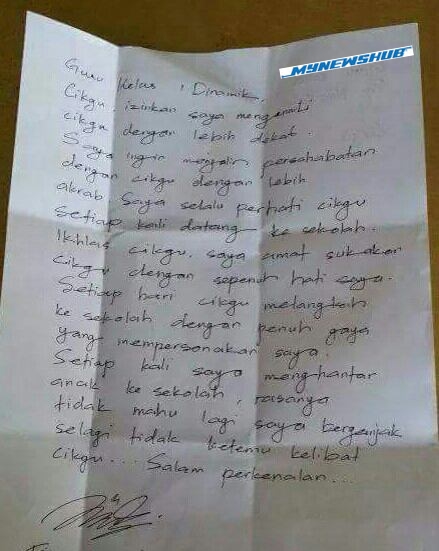 MYNEWSHUB
Guru Kelas 1 Dinamik,
Cikgu, izinkan saya mengenali
cikgu dengan lebih dekat.
Saya ingin menjalin persahabatan
dengan cikgu dengan lebih
akrab. Saya selalu perhati cikgu
setiap kali datang ke sekolah.
Ikhlas cikgu, saya amat sukakan
cikgu dengan sepenuh hati saya.
Setiap hari cikgu melangkah
ke sekolah dengan penuh gaya
yang mempersonakan saya.
Setiap kali saya menghantar
anak ke sekolah, rasanya
tidak mahu lagi saya berganjak
selagi tidak ketemu kelibat
cikgu... Salam perkenalan...